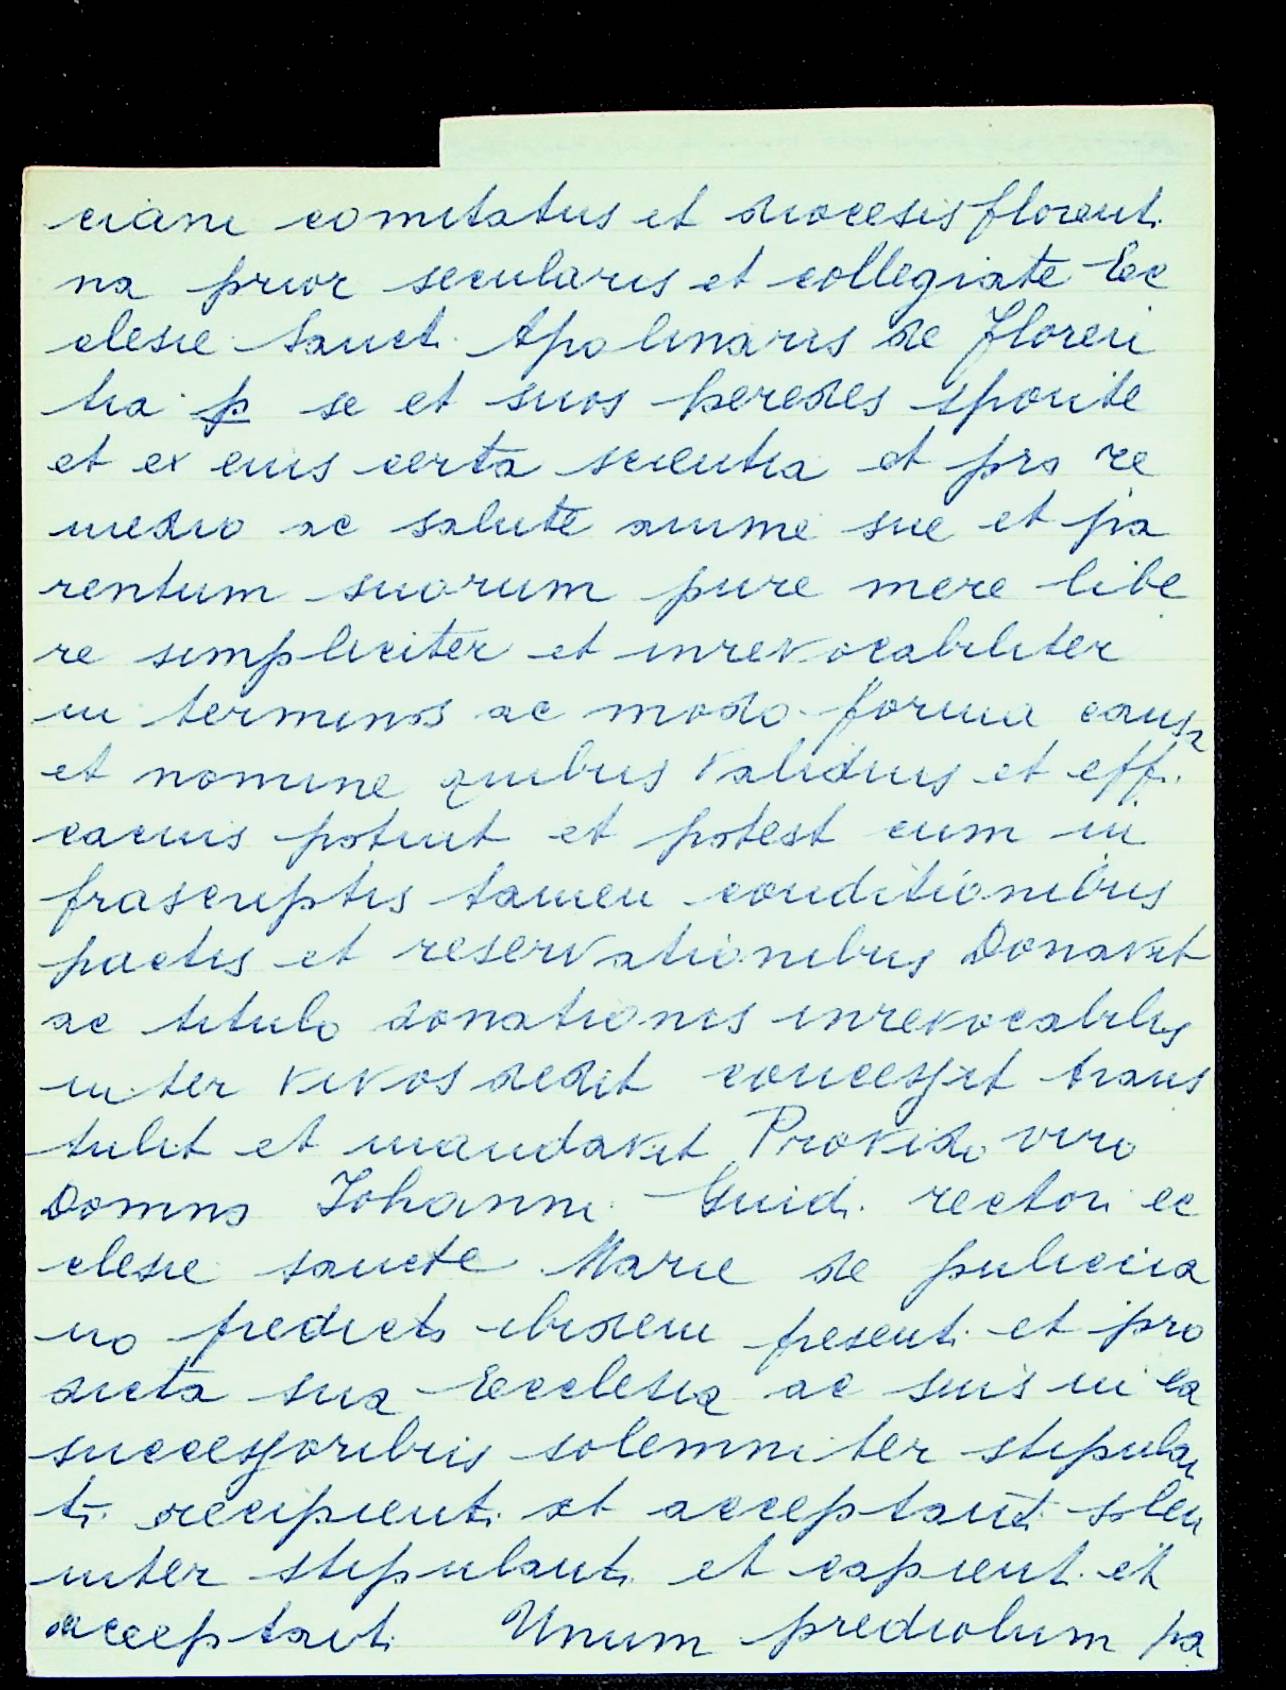 ciani comitatus et diocesis florenti
na prior secularis et collegiate Ec
clesie Sancti Apolinaris de Floren
tia p se et suos heredes sponte
et ex eius certa scientia et pro re
medio ac salute anime sue et pa
rentum suorum pure mere libe
re simpliciter et inrevocabiliter
in terminos ac modo forma causa
et nomine quibus validius et effi
cacius potuit et potest cum in
frascriptis tamen conditionibus
pactis et reservationibus Donavit
ac titulo donationis inrevocabilis
inter vivos dedit concessit trans
tulit et mandavit Provido viro
Domno Johanni Guidi rectori ec
clesie sancte Marie de pulicia
no predicto ibidem presenti et pro
dicta sua Ecclesia ac suis in ea
successoribus solemniter stipulan
ti recipienti et acceptanti solen
niter stipulanti et capienti et
acceptanti Unum prediolum pa